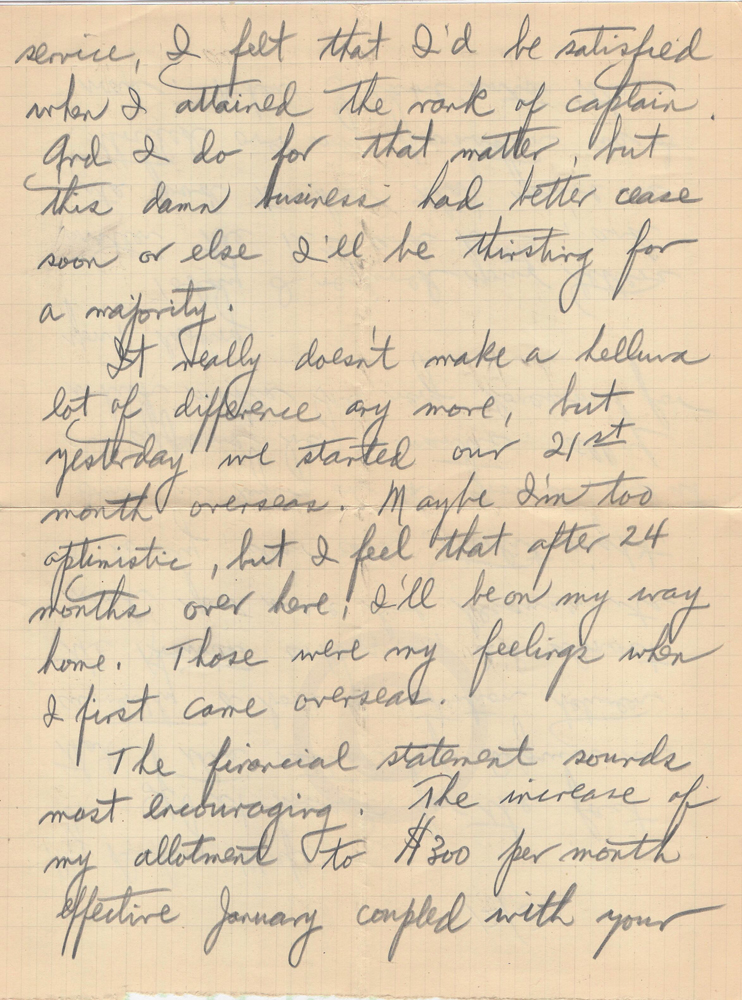 service, I felt that I'd be satisfied
when I attained the rank of captain.
And I do for that matter, but
this damn business had better cease
soon or else I'll be thirsting for
a majority.
It really doesn't make a helluva
lot of difference any more, but
yesterday we started our 21st
month overseas. Maybe I'm too
optimistic, but I feel that after 24
months over here, I'll be on my way
home. Those were my feelings when
I first came overseas.
The financial statement sounds
most encouraging. The increase of
my allotment to $300 per month
effective January coupled with your